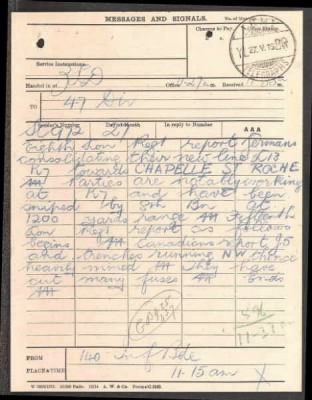 MESSAGES AND SIGNALS.
No. of Message
Charges to Pay
Service Instructions.
ZSD
Handed in at
Office 4-27 a.m. Received
TO 47 Div
Sender's Number. Day of Month In reply to Number AAA
SC972 27
Eighth Lon Regt report Germans
consolidating their new line K13
K7 towards CHAPELLE ST ROCHE
AAA Parties are notably working
at K7 and have been
sniped by 8th Bn at
1200 yards range AAA Fifteenth
Lon Regt report as follows
begins AAA Canadians report J5
and trenches running NW thence
heavily mined AAA They have
cut many fuses AAA Ends
AAA
FROM 140 Inf Bde
PLACE & TIME 11-15 am